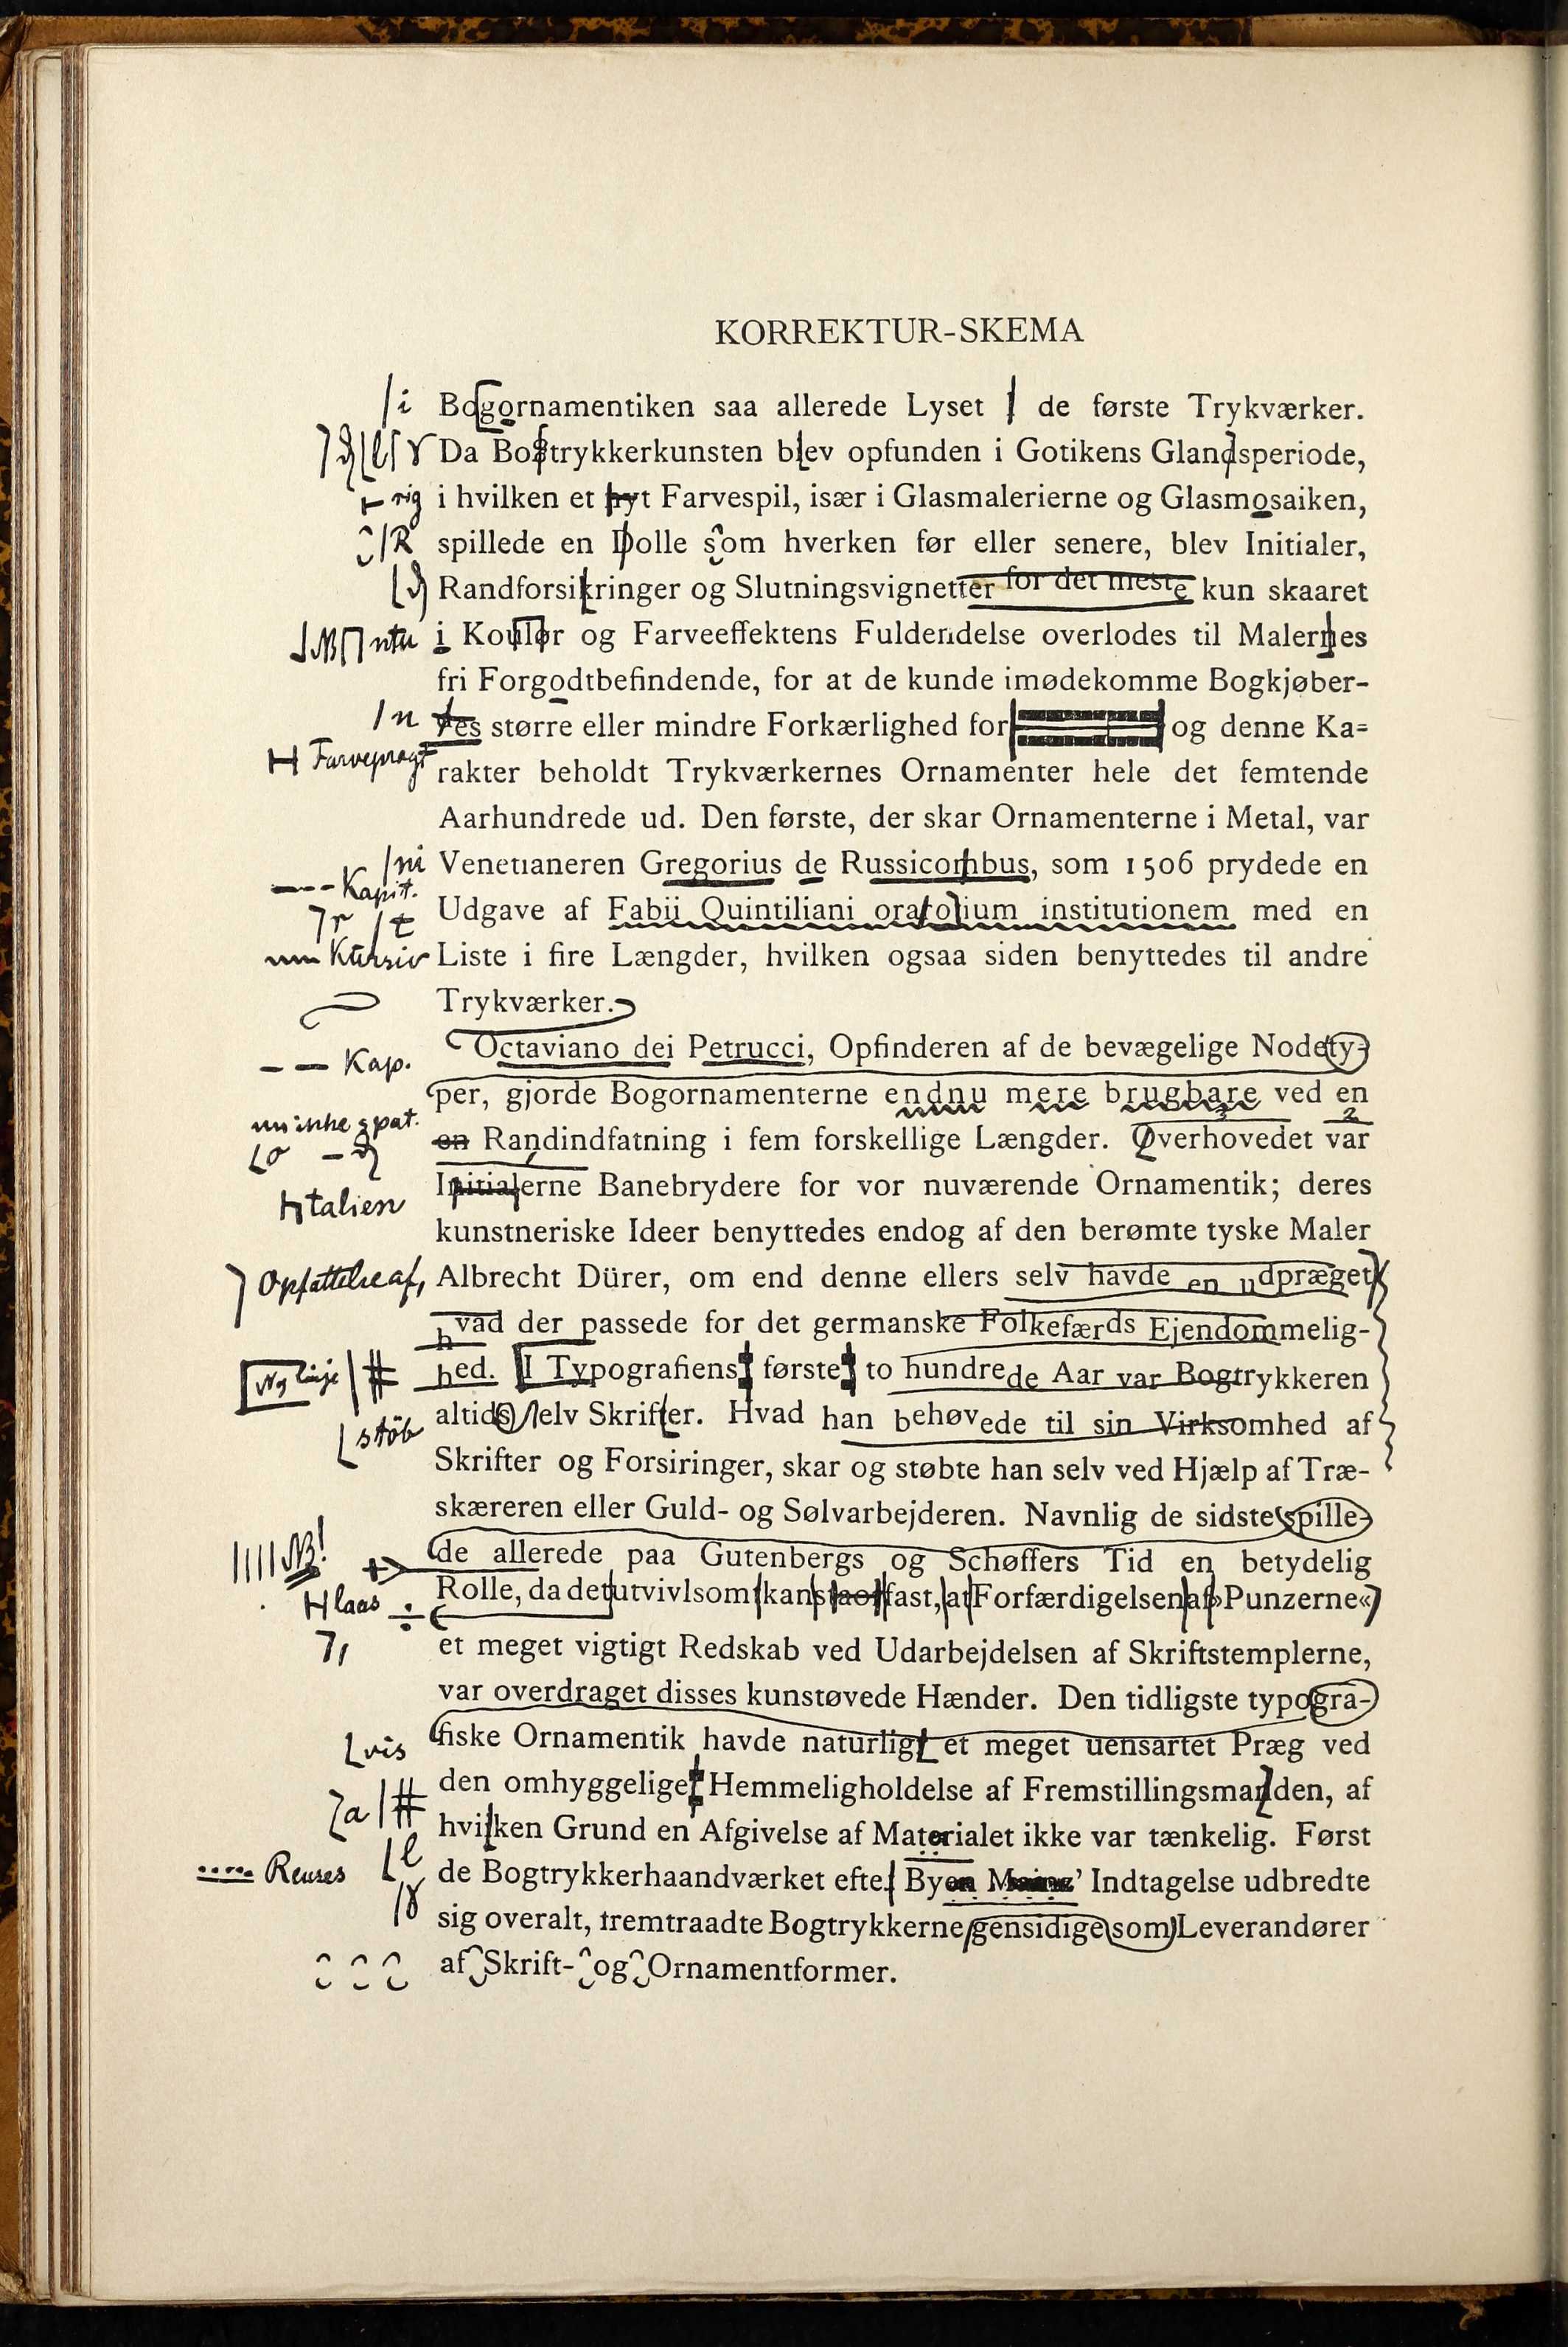 KORREKTUR-SKEMA
/i Bogornamentiken saa allerede Lyset de første Trykværker.
Da Bostrykkerkunsten blev opfunden i Gotikens Glandsperiode,
rig i hvilken et nyt Farvespil, især i Glasmalerierne og Glasmosaiken,
/R spillede en Dolle som hverken før eller senere, blev Initialer,
Randforsikringer og Slutningsvignetter for det meste kun skaaret
i og Farveeffektens Fuldendelse overlodes til Malernes
fri Forgodtbefindende, for at de kunde imødekomme Bogkjøber-
/n større eller mindre Forkærlighed for og denne Ka-
Farvepragt rakter beholdt Trykværkernes Ornamenter hele det femtende
Aarhundrede ud. Den første, der skar Ornamenterne i Metal, var
/ni Venetianeren Gregorius de Russicombus, som 1506 prydede en
Kapit.
r /t Udgave af Fabii Quintiliani oratolium institutionem med en
Kursiv Liste i fire Længder, hvilken ogsaa siden benyttedes til andre
Trykværker.
Kap. Octaviano dei Petrucci, Opfinderen af de bevægelige Nodety-
per, gjorde Bogornamenterne endnu mere brugbare ved en
ikke spat.
en Randindfatning i fem forskellige Længder. Øverhovedet var
talien Initialerne Banebrydere for vor nuværende Ornamentik; deres
kunstneriske Ideer benyttedes endog af den berømte tyske Maler
Opfattelse af, Albrecht Dürer, om end denne ellers selv havde en udpræget
hvad der passede for det germanske Folkefærds Ejendommelig-
Ny linje # hed. I Typografiens første to hundrede Aar var Bogtrykkeren
støb altids selv Skrifter. Hvad han behøvede til sin Virksomhed af
Skrifter og Forsiringer, skar og støbte han selv ved Hjælp af Træ-
skæreren eller Guld- og Sølvarbejderen. Navnlig de sidste spille-
NB! de allerede paa Gutenbergs og Schøffers Tid en betydelig
laas Rolle, da det utvivlsomt kan fast, at Forfærdigelsen af »Punzerne«
et meget vigtigt Redskab ved Udarbejdelsen af Skriftstemplerne,
var overdraget disses kunstøvede Hænder. Den tidligste typogra-
vis fiske Ornamentik havde naturligt et meget uensartet Præg ved
a # den omhyggelige Hemmeligholdelse af Fremstillingsmanden, af
hvilken Grund en Afgivelse af Materialet ikke var tænkelig. Først
Renses l de Bogtrykkerhaandværket efter Byen Indtagelse udbredte
sig overalt, fremtraadte Bogtrykkerne gensidige som Leverandører
af Skrift- og Ornamentformer.